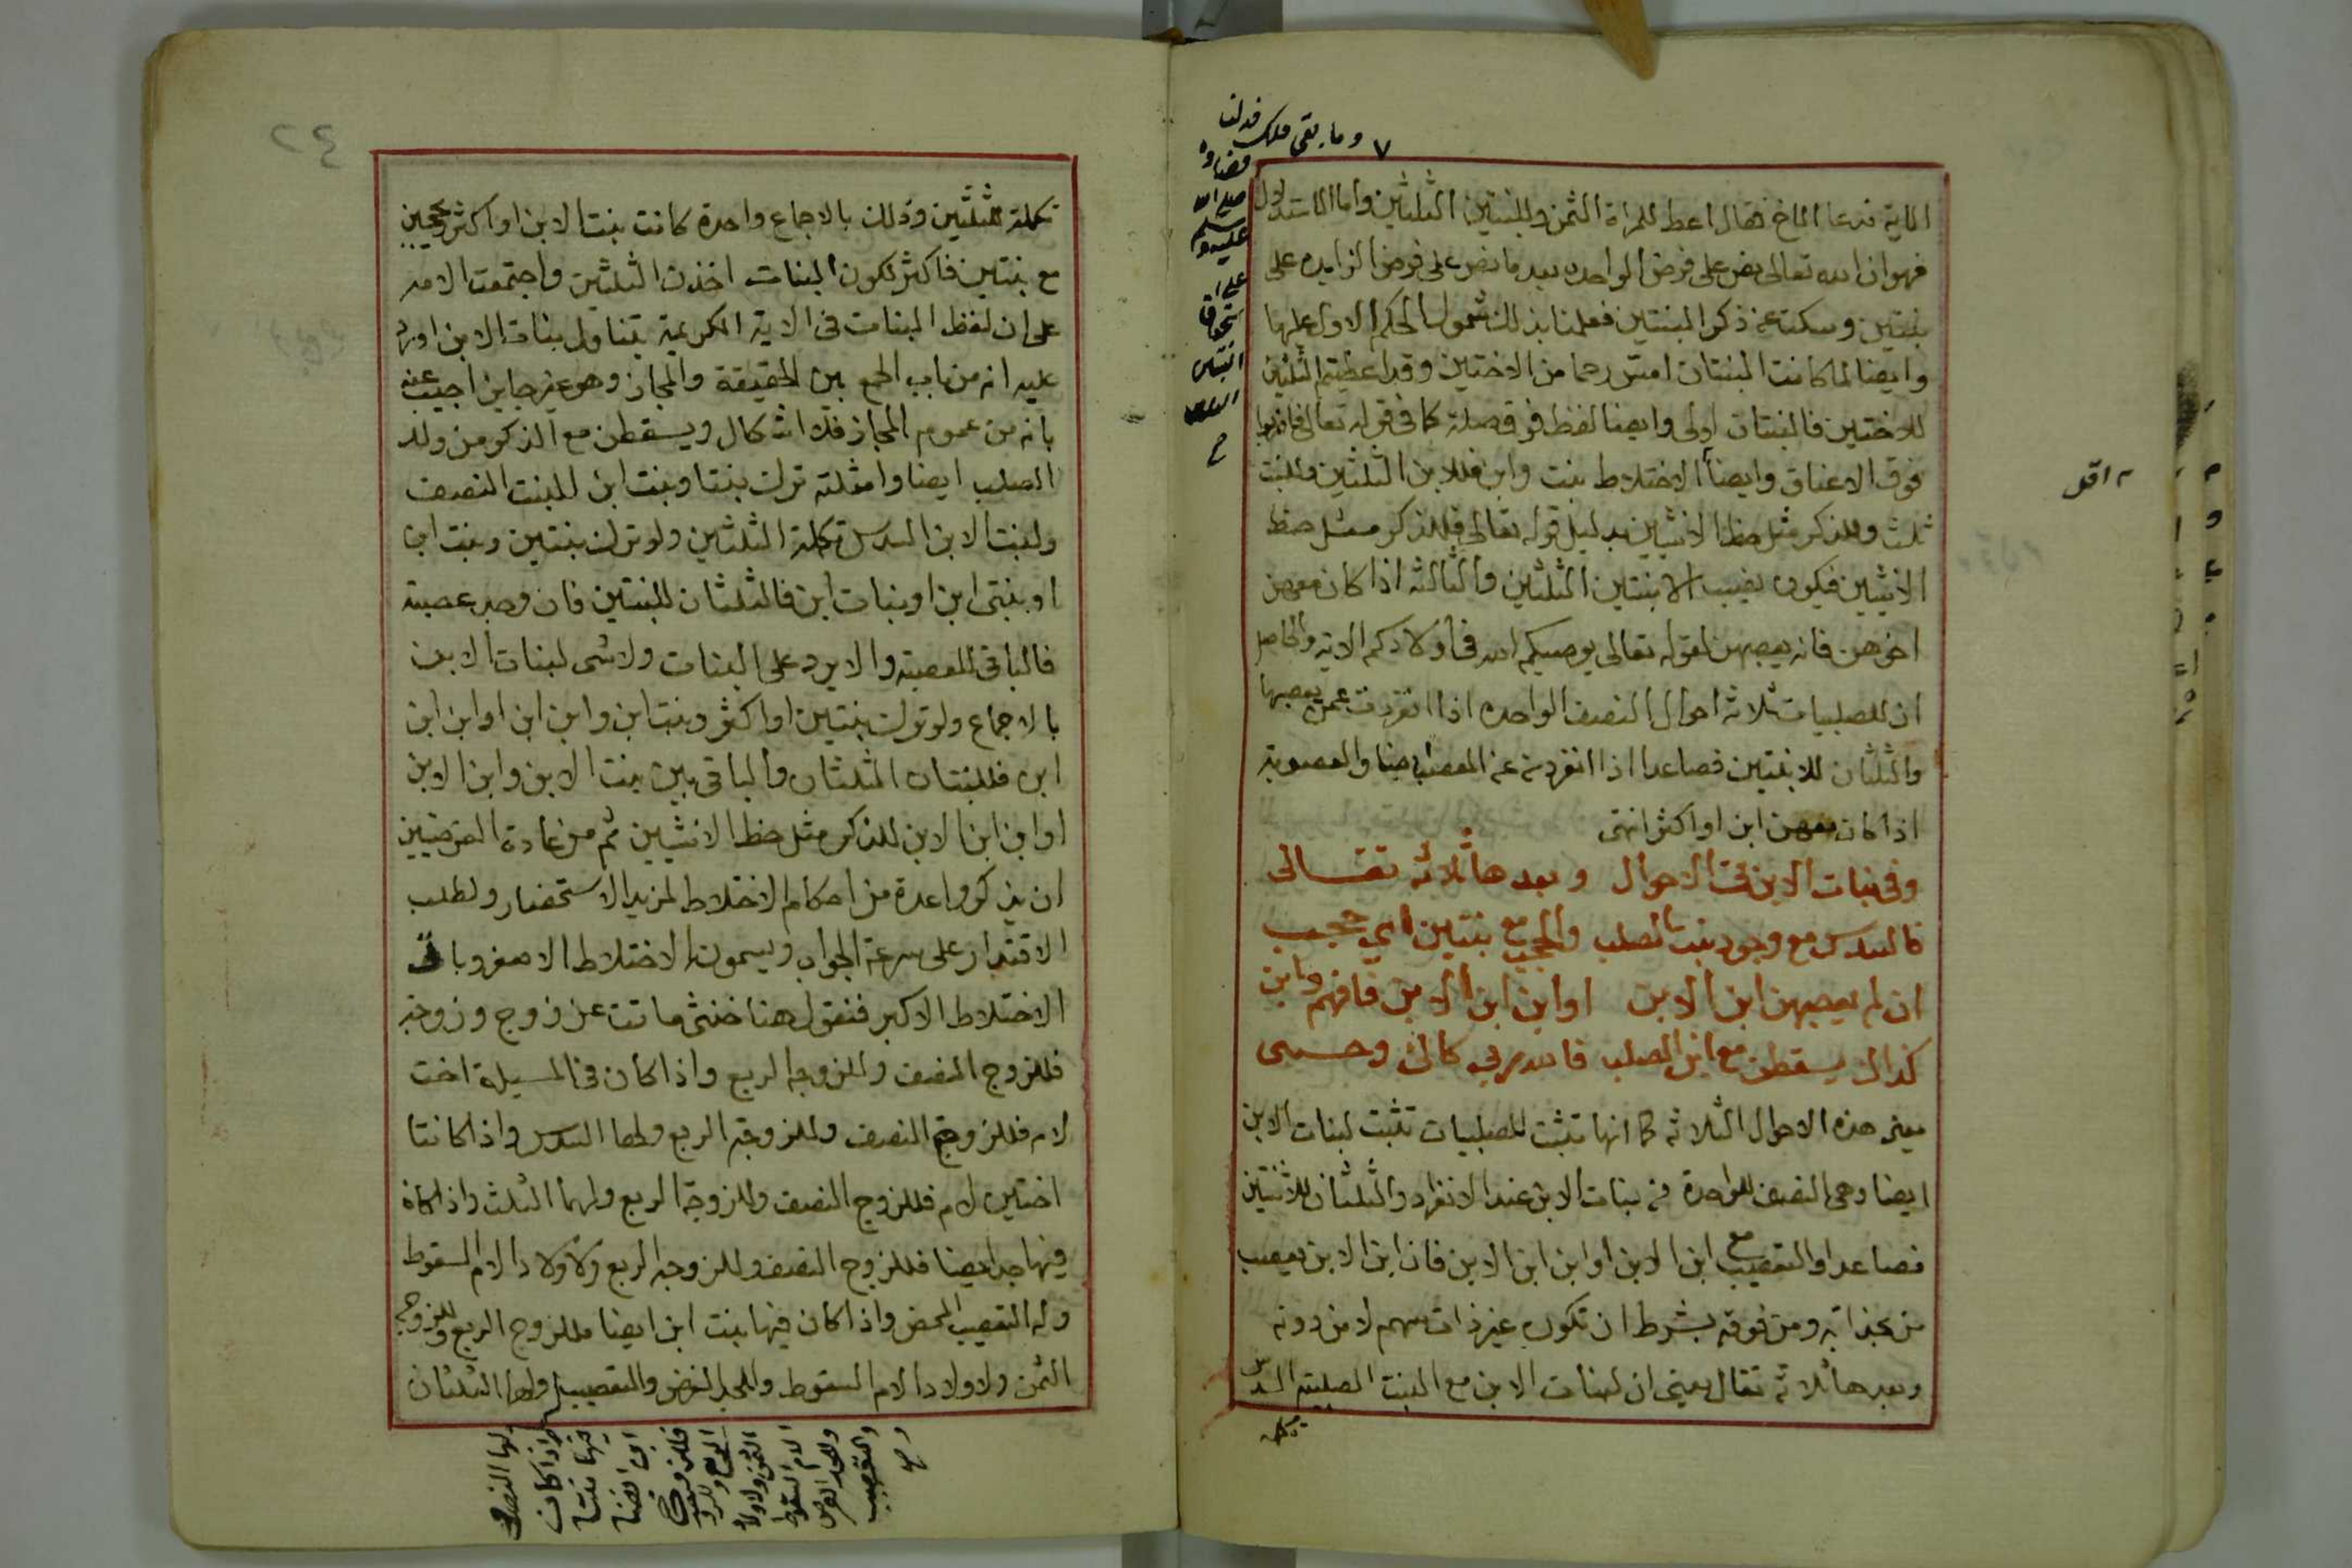 وما بقى فلك فدلنا
قضاؤه
صلى الله
عليه وسلم
على
استحقاق
البنتين
الثلثين
الاية فدعا الاخ فقال اعط للمراة الثمن وللبنتين الثلثين واما الاستدلال
فهو ان الله تعالى نص على فرض الواحده بعد ما نص على فرض الزايده على
بنتين وسكت عن ذكر البنتين فعلمنا بذلك شمول الحكم الاول عليها
وايضا لما كانت البنتان امس رحما من الاختين وقد اعطيتم الثلثين
للاختين فالبنتان اولى وايضا لفظ فوق صلة كما في قوله تعالى فاضربوا
فوق الاعناق وايضا الاختلاط بنت وابن فللابن الثلثين وللبنت
ثلث وللذكر مثل حظ الانثيين بدليل قوله تعالى فللذكر مثل حظ
الانثيين فيكون نصيب الابنتين الثلثين والثالثه اذا كان معهن
اخوهن فانه يعصبهن لقوله تعالى يوصيكم الله في اولادكم الاية والحاصل
ان للصلبيات ثلاثه احوال النصف الواحده اذا انفردت عمن يعصبها
والثلثان للابنتين فصاعدا اذا انفردت عن المعصب ايضا والعصوبة
اذا كان معهن ابن او اكثر انتهى
وفي بنات الابن تحت الاحوال وبعدها ثلاثه تقالى
فالسدس مع وجود بنت الصلب والحجب مع بنتين اي حجب
ان لم يعصبهن ابن الابن او ابن ابن الابن فافهم وابن
كذاك يسقطن مع ابن الصلب فاسدس لي كالى وحسبى
يعني هذه الاحوال الثلاثه كما انها تثبت للصلبيات تثبت لبنات الابن
ايضا وهي النصف للواحدة من بنات الابن عند الانفراد والثلثان للاثنتين
فصاعدا والتعصيب مع ابن الابن او ابن ابن الابن فان ابن الابن يعصب
من بحذائه ومن فوقه بشرط ان تكون غير ذات سهم لا من دونه
وبعدها ثلاثه تقال يعني ان لبنات الابن مع البنت الصلبيه السدس
تكملة
اقل
٢٤
تكملة للثلثين وذلك بالاجماع واحدة كانت بنت الابن او اكثر ويحجبن
مع بنتين فاكثر لكون البنات اخذن الثلثين واجتمعت الامه
على ان لفظ البنات في الاية الكريمة يتناول بنات الابن اورد
عليه انه من باب الجمع بين الحقيقة والمجاز وهو غير جايز اجيب عنه
بانه من عموم المجاز فلا اشكال ويسقطن مع الذكور من ولد
الصلب ايضا وامثلته ترك بنتا وبنت ابن للبنت النصف
ولبنت الابن السدس تكملة الثلثين ولو ترك بنتين وبنت ابن
او بنتى ابن او بنات ابن فالثلثان للبنتين فان وجد عصبة
فالباقي للعصبة والا يرد على البنات ولا شى لبنات الابن
بالاجماع ولو ترك بنتين او اكثر وبنت ابن وابن ابن او ابن ابن
ابن فللبنتان الثلثان والباقي بين بنت الابن وابن الابن
او ابن ابن الابن للذكر مثل حظ الانثيين ثم من عادة الفرضيين
ان يذكروا عدة من احكام الاختلاط لمزيد الاستحضار ولطلب
الاقتدار على سرعة الجواب ويسمون الاختلاط الاصغر وباقى
الاختلاط الاكبر فنقول هنا خنثى ماتت عن زوج وزوجة
فللزوج النصف وللزوجه الربع واذا كان في المسيلة اخت
لام فللزوج النصف وللزوجه الربع ولها السدس واذا كانتا
اختين لام فللزوج النصف وللزوجة الربع ولهما الثلث واذا كان
فيها جد ايضا فللزوج النصف وللزوجه الربع ولاولاد الام السقوط
وله التعصيب المحض واذا كان فيها بنت ابن ايضا فللزوج الربع وللزوجه
الثمن ولاولاد الام السقوط وللجد الفرض والتعصيب ولها الثلثان
لها النصف
واذا كان
فيها بنت
ابن ايضا
فللزوج
الربع وللزوجة
الثمن ولاولاد
الام السقوط
وللجد الفرض
والتعصيب
صح